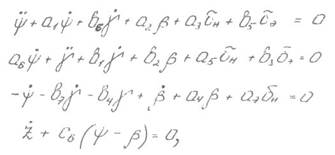 ψ̈ + a₁ψ̇ + b₆γ̇ + a₂β + a₃δ̄ₙ + b₅δ̄ₔ = 0
a₆ψ̇ + γ̈ + b₁γ̇ + b₂β + a₅δ̄ₙ + b₃δ̄ₔ = 0
-ψ̇ - b₇γ̇ - b₄γ + β̇ + a₄β + a₇δ̄ₙ = 0
ż + c₆(ψ - β) = 0,